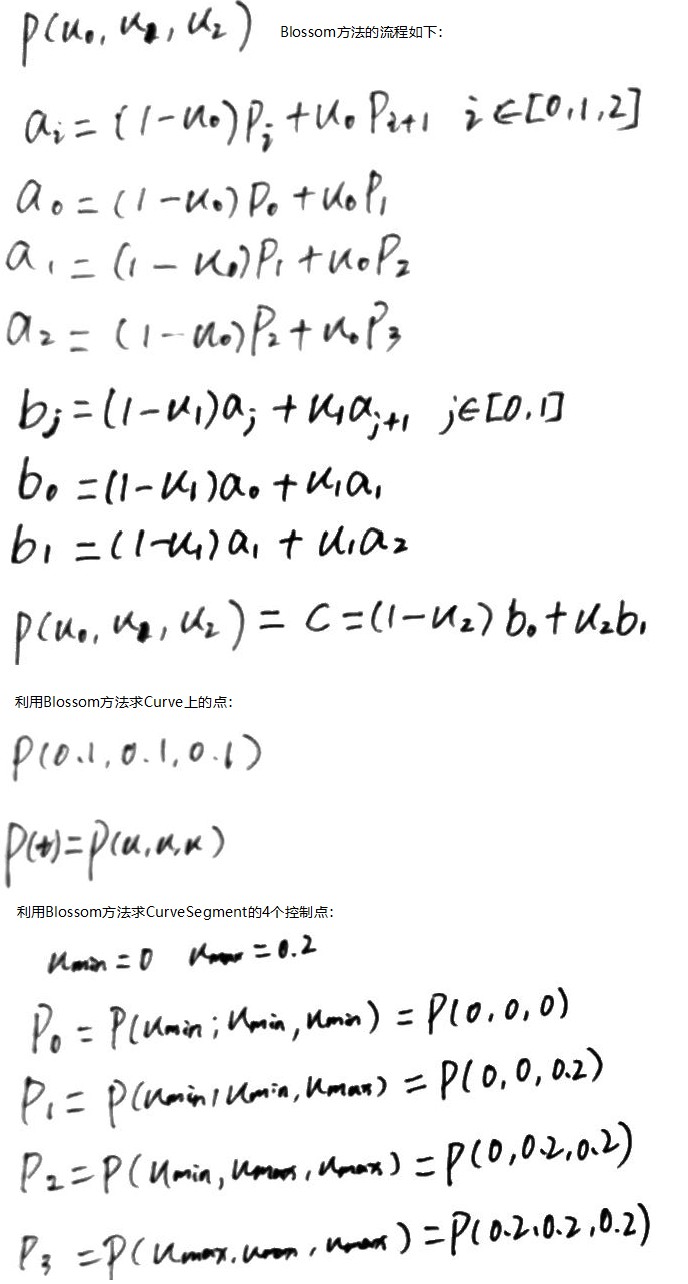 P(u₀, u₁, u₂) Blossom方法的流程如下：
aᵢ = (1-u₀)Pᵢ + u₀Pᵢ₊₁ i∈[0,1,2]
a₀ = (1-u₀)P₀ + u₀P₁
a₁ = (1-u₀)P₁ + u₀P₂
a₂ = (1-u₀)P₂ + u₀P₃
bⱼ = (1-u₁)aⱼ + u₁aⱼ₊₁ j∈[0,1]
b₀ = (1-u₁)a₀ + u₁a₁
b₁ = (1-u₁)a₁ + u₁a₂
P(u₀, u₁, u₂) = C = (1-u₂)b₀ + u₂b₁
利用Blossom方法求Curve上的点：
P(0.1, 0.1, 0.1)
P(t) = P(u,u,u)
利用Blossom方法求CurveSegment的4个控制点：
umin = 0 umax = 0.2
P₀ = P(umin; umin, umin) = P(0, 0, 0)
P₁ = P(umin, umin, umax) = P(0, 0, 0.2)
P₂ = P(umin, umax, umax) = P(0, 0.2, 0.2)
P₃ = P(umax, umax, umax) = P(0.2, 0.2, 0.2)